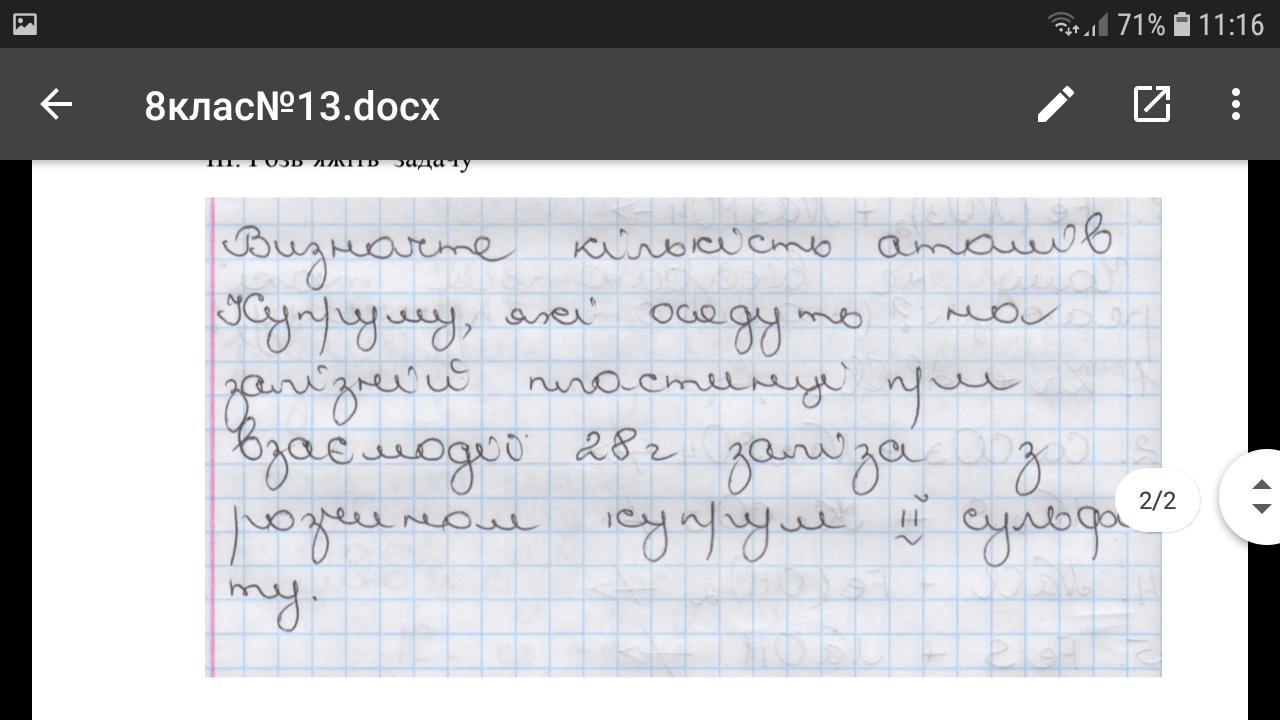 71% 11:16
8клас№13.docx
ІІІ. Розв'яжіть задачу
Визначте кількість атомів
Купруму, які осядуть на
залізній пластинці при
взаємодії 28г заліза з
розчином купрум ІІ сульфа
ту.
2/2